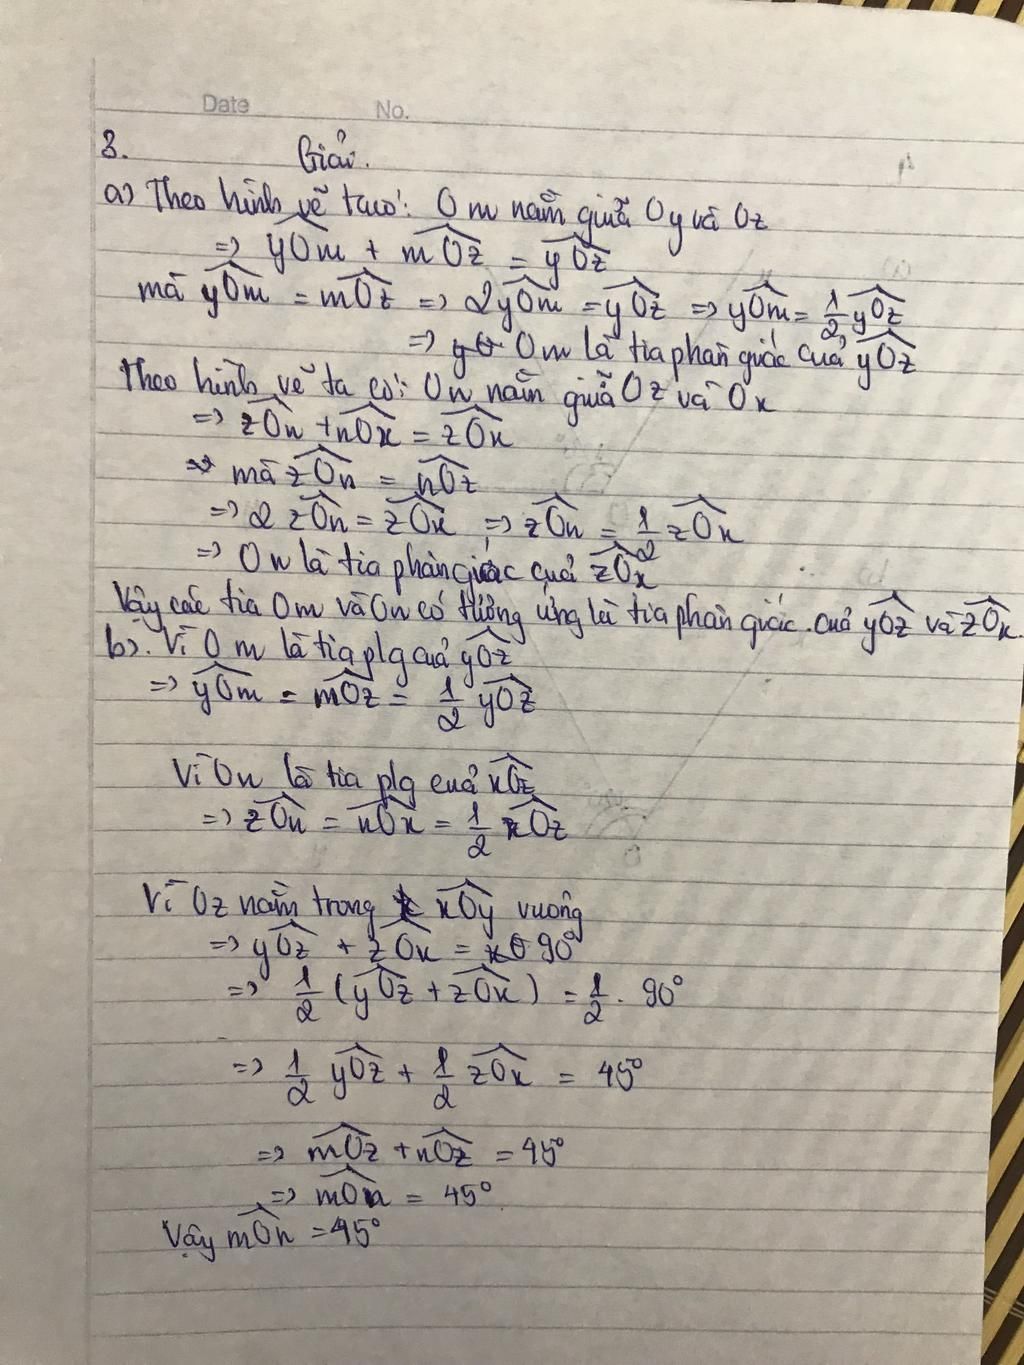 Date No.
3. Giải.
a) Theo hình vẽ ta có: Om nằm giữa Oy và Oz
=> yOm + mOz = yOz
mà yOm = mOz => 2yOm = yOz => yOm = 1/2 yOz
=> Om là tia phân giác của yOz
Theo hình vẽ ta có: On nằm giữa Oz và Ox
=> zOn + nOx = zOx
mà zOn = nOz
=> 2 zOn = zOx => zOn = 1/2 zOx
=> On là tia phân giác của zOx
Vậy các tia Om và On có tương ứng là tia phân giác của yOz và zOx.
b). Vì Om là tia plg của yOz
=> yOm = mOz = 1/2 yOz
Vì On là tia plg của xOz
=> zOn = nOx = 1/2 xOz
Vì Oz nằm trong xOy vuông
=> yOz + zOx = 90°
=> 1/2 (yOz + zOx) = 1/2 . 90°
=> 1/2 yOz + 1/2 zOx = 45°
=> mOz + nOz = 45°
=> mOn = 45°
Vậy mOn = 45°